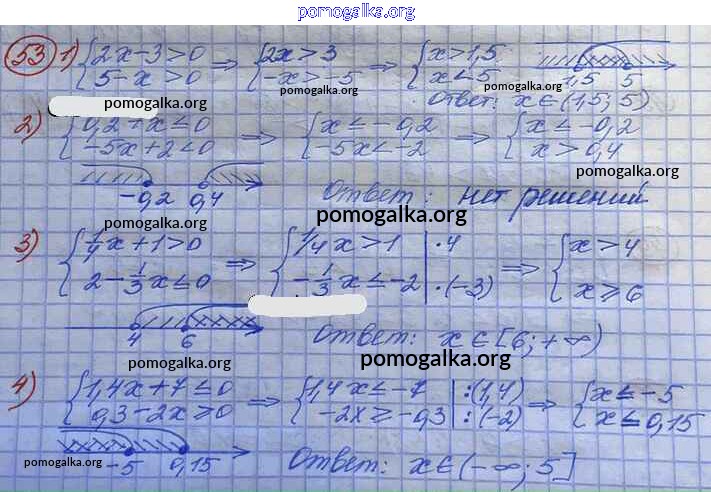 pomogalka.org
53 1) {2x-3>0 ⇒ {2x>3 ⇒ {x>1,5
{5-x>0 {-x>-5 {x<5 1,5 5
pomogalka.org pomogalka.org pomogalka.org
Ответ: x∈(1,5; 5)
2) {0,2+x≤0 ⇒ {x≤-0,2 ⇒ {x≤-0,2
{-5x+2<0 {-5x<-2 {x>0,4
pomogalka.org
-0,2 0,4 Ответ: нет решений
pomogalka.org pomogalka.org
3) {1/4x+1>0 ⇒ {1/4x>1 |·4 ⇒ {x>4
{2-1/3x≤0 {-1/3x≤-2 |·(-3) {x≥6
4 6 Ответ: x∈[6; +∞)
pomogalka.org pomogalka.org
4) {1,4x+7≤0 ⇒ {1,4x≤-7 |:(1,4) ⇒ {x≤-5
{0,3-2x≥0 {-2x≥-0,3 |:(-2) {x≤0,15
pomogalka.org -5 0,15 Ответ: x∈(-∞; 5]